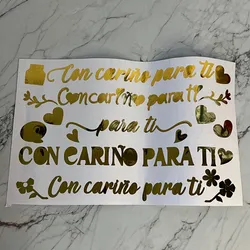 Con cariño para ti
Con cariño para ti
para ti
CON CARIÑO PARA TI
Con cariño para ti